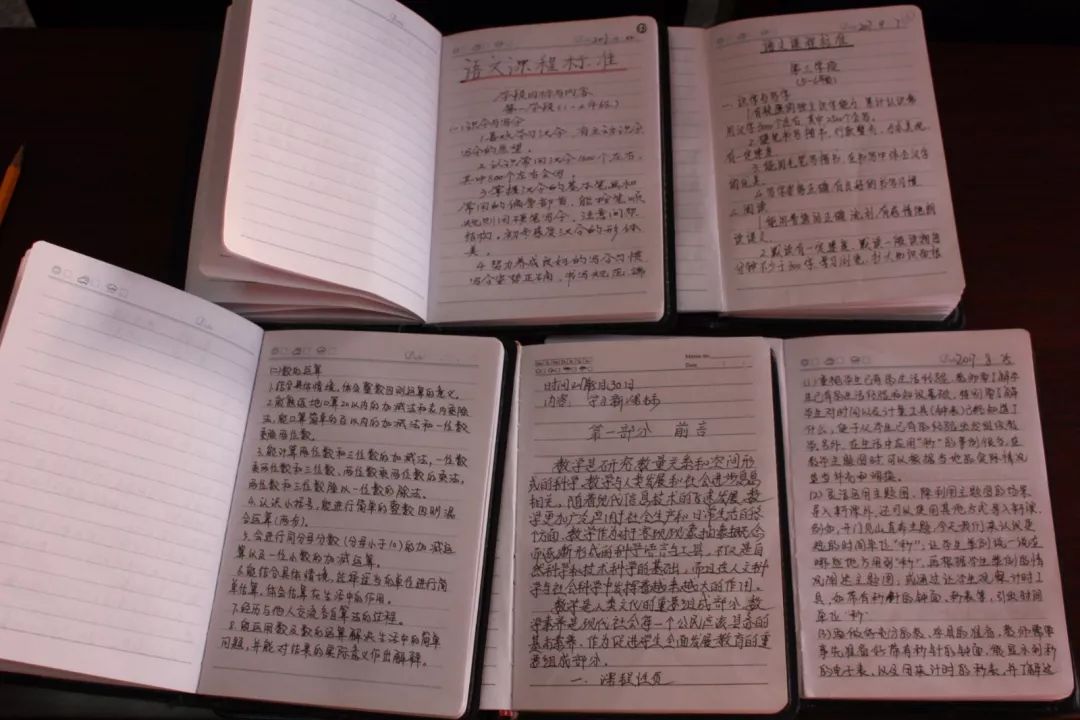 语文课程标准
学段目标与内容
第一学段(1-2年级)
(一)识字与写字
1.喜欢学习汉字,有主动识字
写字的愿望。
2.认识常用汉字1600个左右,
其中800个左右会写。
3.掌握汉字的基本笔画和
常用的偏旁部首,能按笔顺
规则用硬笔写字,注意间架
结构,初步感受汉字的形体
美。
4.努力养成良好的写字习惯
写字姿势正确,书写规范、端
语文课程标准
第三学段
(5-6年级)
一、识字与写字
1.有较强的独立识字能力,累计认识常
用汉字3000个左右,其中2500个会写。
2.硬笔书写楷书,行款整齐,力求美观,
有一定速度。
3.能用毛笔书写楷书,在书写中体会汉字
的优美。
4.写字姿势正确,有良好的书写习惯
二、阅读
1.能用普通话正确、流利、有感情地朗
读课文
2.默读有一定速度,默读一般读物每
分钟不少于300字,学习浏览,扩大知识面
(二)数的运算
1.结合具体情境,体会整数四则运算的意义。
2.能熟练地口算20以内的加减法和表内乘除
法,能口算简单的百以内的加减法和一位数
乘除两位数。
3.能计算两位数和三位数的加减法,一位数
乘两位数和三位数、两位数乘两位数的乘法,
两位数和三位数除以一位数的除法。
4.认识小括号,能进行简单的整数四则混
合运算(两步)。
5.会进行同分母分数(分母小于10)的加减运
算以及一位小数的加减运算。
6.能结合具体情境,选择适当的单位进行简
单估算,体会估算在生活中的作用。
7.经历与他人交流各自算法的过程。
8.能运用数及数的运算解决生活中的简单
问题,并能对结果的实际意义作出解释。
内容:学习新课标
第一部分 前言
数学是研究数量关系和空间形
式的科学。数学与人类发展和社会进步息息
相关,随着现代信息技术的飞速发展,数
学更加广泛应用于社会生产和日常生活的各
个方面。数学作为对客观现象抽象概括
而逐渐形成的科学语言与工具,不仅是自
然科学和技术科学的基础,而且在人文科
学与社会科学中发挥着越来越大的作用。
数学是人类文化的重要组成部分,数
学素养是现代社会每一个公民应该具备的
基本素养。作为促进学生全面发展教育的重
要组成部分,
一、课程性质
2017 8 25
(1)重视学生已有的生活经验。教师要了解学
生已有的生活经验和知识基础,特别要了解
学生对时间以及计量工具(钟表)已经知道了
什么,便于从学生已有的经验出发组织教
学。另外,在生活中应用“秒”的事例很多,在
教学主题图时可以根据当地的实际情况
适当补充和调换。
(2)灵活运用主题图。除利用主题图的场景
导入新课外,还可以使用其他方式导入新课。
例如,开门见山直奔主题:今天我们来认识更
短的时间单位“秒”,让学生举例说一说在
哪些地方用到“秒”,再根据学生举例的情
况阐述主题图。或通过让学生观察计时工
具,如带有秒针的钟面、秒表等,引出时间
单位“秒”
(3)要做好充分的教、学具的准备。教师需要
事先准备好带有秒针的钟面、能显示到秒
的电子表,以及用来计时的秒表,并了解这